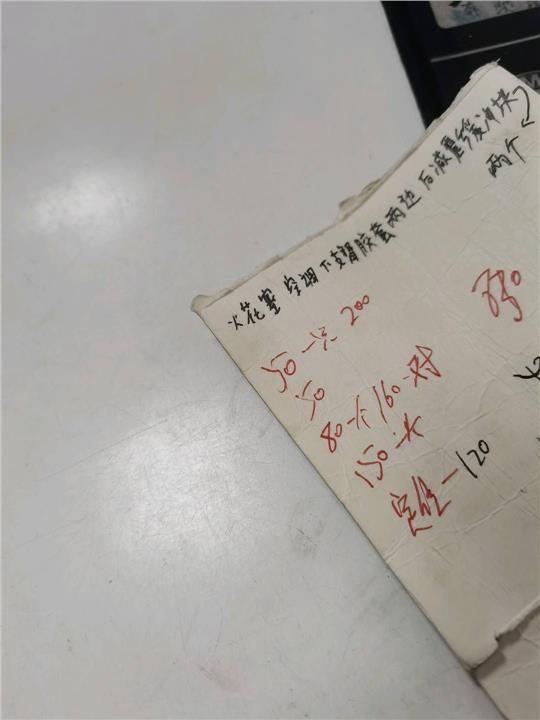 火花塞 空调 下支臂胶套两边 后减震缓冲块
两个
50一只 200
50
80一个 160一对
150一个
定位一120